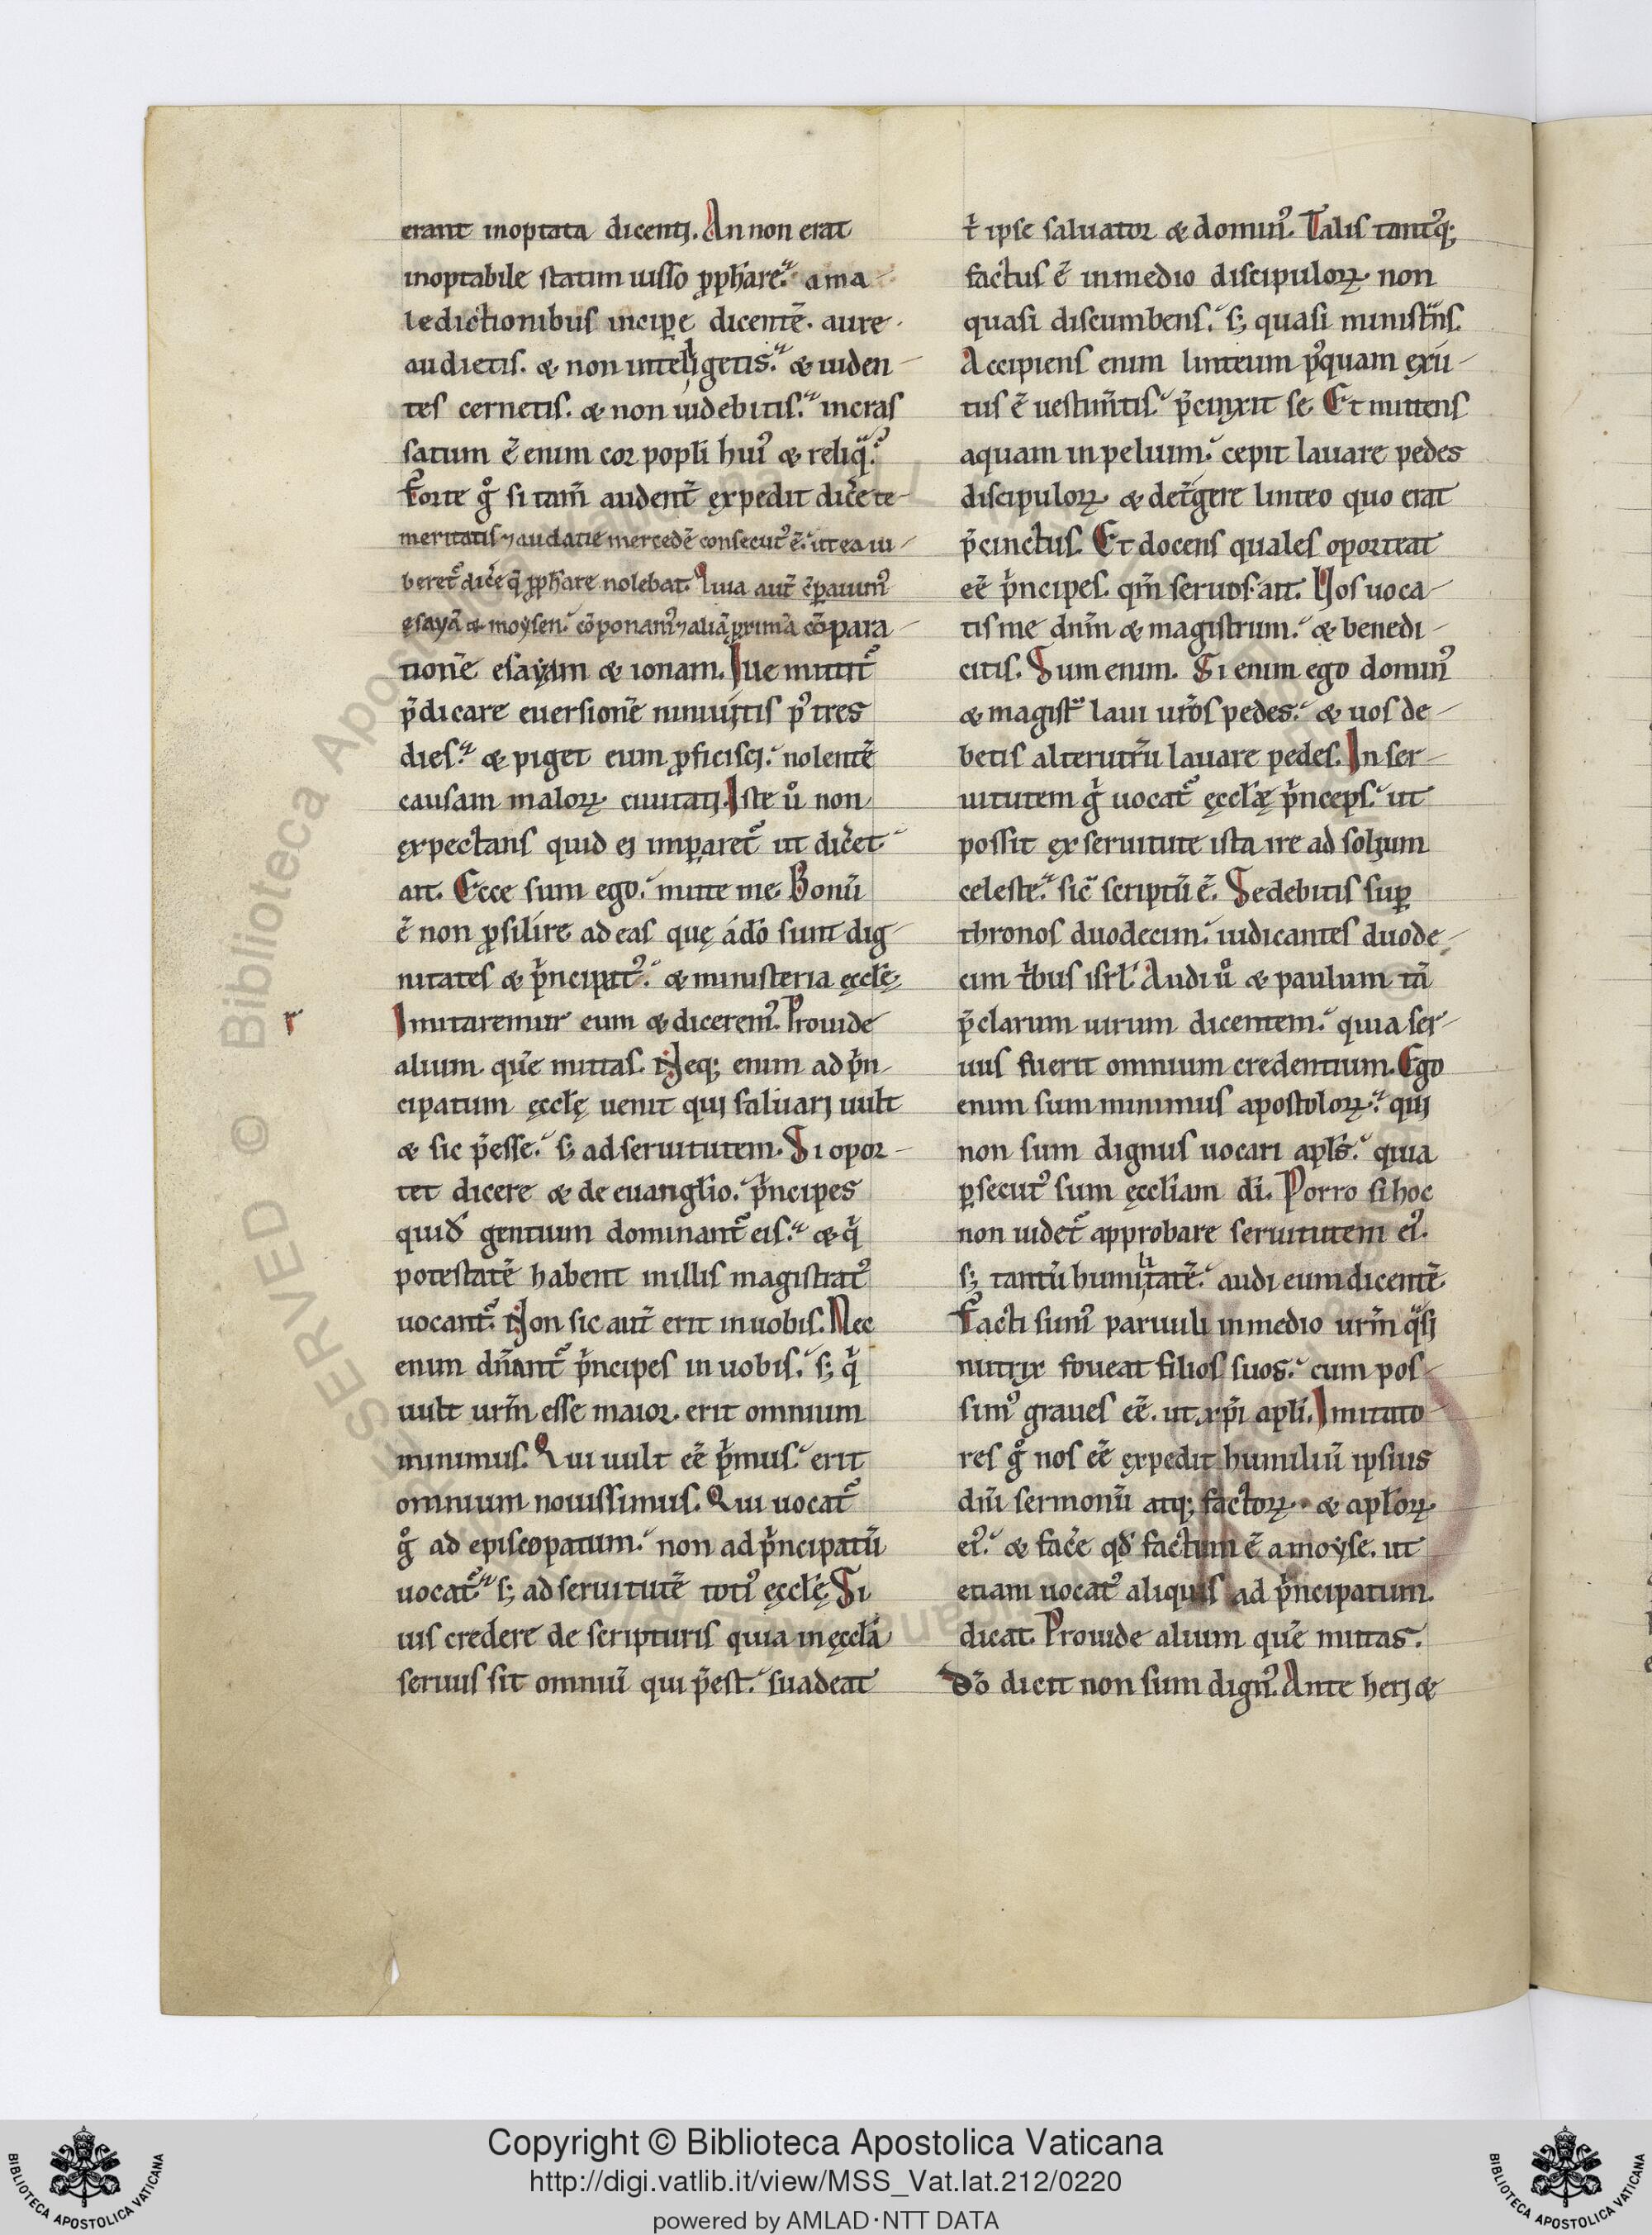 erant inoptata dicentj. An non erat
inoptabile statim uisso ꝓph̄are. ama
ledictionibus incipe dicentē. aure
audietis. & non intelligetis. & uiden
tes cernetis. & non uidebitis. incras
satum ē enim cor popl̄i hui᷒ & reliq̄.
Forte g̊ si tam̄ audent̄ ęxpedit dic̄e te
meritatis ⁊ audatie mercedē consecut᷒ ē. ut ea iu
beret᷑ dic̄e q̄ ꝓph̄are nolebat. Quia aut̄
ęsayā & moysen. cōponam᷒ ⁊ aliā primā cōpara
tionē esayam & ionam. Iste mittit᷑
p̄dicare euersionē niniuitis p᷒ tres
dies. & piget eum ꝓficiscj. nolentē
causam maloꝝ ciuitatj. Iste ů non
ęxpectans quid ej imparet᷑ ut dic̄et
ait. Ecce sum ego. mitte me. Bonū
ē non ꝓsilire ad eas quę ádō sunt dig
nitates & p̍ncipat᷒. & ministeria ęccl̄ę.
Imitaremur eum & dicerem᷒. Prouide
alium quē mittas. Neq; enim ad p̍n
cipatum ęccl̄ę uenit quj saluarj uult
& sic p̄esse. s; ad seruitutem. Si opor
tet dicere & de euangl̄io. p̍ncipes
quid̄ gentium dominant᷑ eis. & q̍
potestatē habent in illis magistrat᷒
uocant᷑. Non sic aut̄ erit in uobis. Nec
enim dn̄ant᷑ p̍ncipes in uobis. s; q̍
uult urm̄ esse maior. erit omnium
minimus. Qui uult eē p̍mus. erit
omnium nouissimus. Qui uocat᷑
g̊ ad episcopatum. non ad p̍ncipatū
uocat᷑. s; ad seruitutē toti᷒ ęccl̄ę. Si
uis credere de scripturis quia in ęccl̄a
seruus sit omniū qui p̄est. suadeat
r
t̍ ipse saluator & domin᷒. Talis tant᷒q;
factus ē in medio discipuloꝝ. non
quasi discumbens. s; quasi minist̄ns.
Accipiens enim linteum p᷒quam ęxu
tus ē uestim̄tis. p̄cinxit se. Et mittens
aquam in peluim. cepit lauare pedes
discipuloꝝ & det̄gere linteo quo erat
p̄cinctus. Et docens quales oporteat
eē p̍ncipes. qm̄ seruos. ait. Uos uoca
tis me dnm̄ & magistrum. & benedi
citis. Sum enim. Si enim ego domin᷒
& magist᷑ laui ur̄os pedes. & uos de
betis alterutr̄u lauare pedes. In ser
uitutem g̍ uocat᷑ ęccl̄ę p̍nceps. ut
possit ęx seruitute ista ire ad solium
celeste. sic̄ scriptū ē. Sedebitis sup
thronos duodecim. iudicantes duode
cim t̍bus isrl̄. Audi ů & paulum tā
p̄clarum uirum dicentem. quia ser
uus fuerit omnium credentium. Ego
enim sum minimus apostoloꝝ. quj
non sum dignus uocari apl̄s. quia
ꝑsecut᷒ sum ęccl̄iam dī. Porro si hoc
non uidet᷑ approbare seruitutem ei᷒.
s; tantū humilitatē. audi eum dicentē.
Facti sum᷒ paruuli in medio urm̄ q̄sj
nutrix foueat filios suos. cum pos
sim᷒ graues eē. ut xp̄i apl̄i. Imitato
res g̊ nos eē ęxpedit humiliū ipsius
dn̄i sermonū atq; factoꝝ. & apl̄oꝝ
ei᷒. & fac̄e qd̄ factum ē a moyse. ut
etiam uocat᷒ aliquis ad p̍ncipatum.
dicat. Prouide alium quē mittas.
dō dicit non sum dign᷒. Ante herj &
Copyright © Biblioteca Apostolica Vaticana
http://digi.vatlib.it/view/MSS_Vat.lat.212/0220
powered by AMLAD·NTT DATA